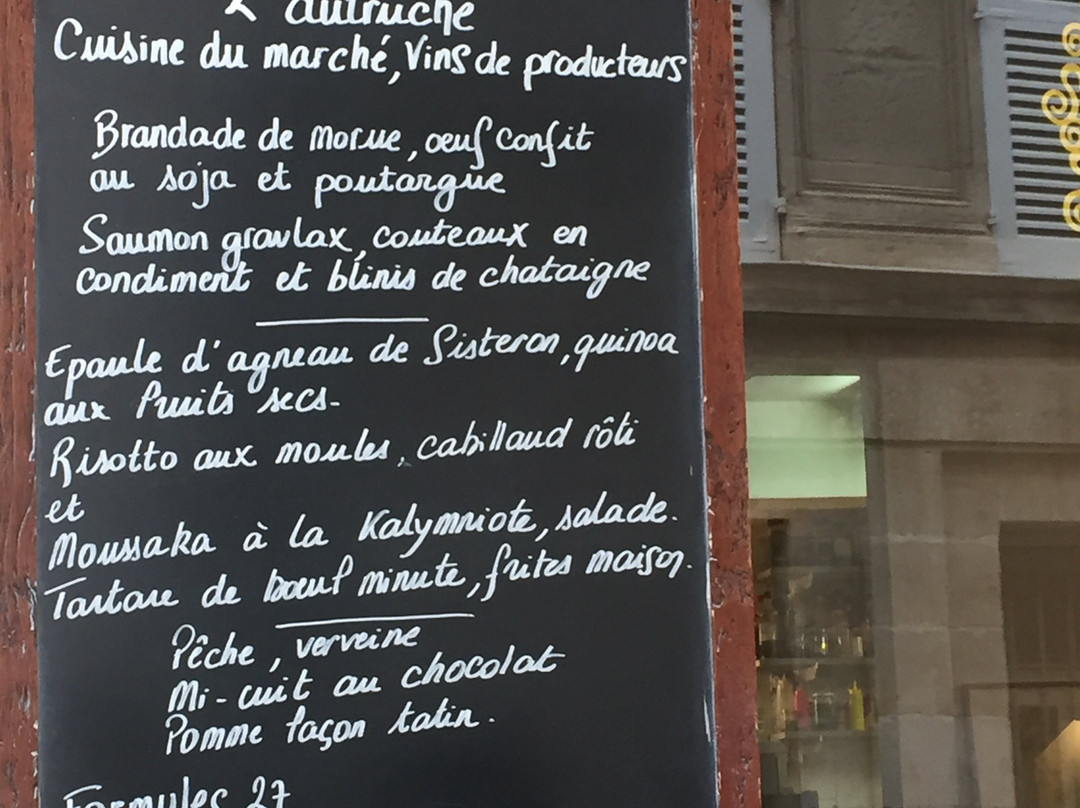 L'autruche
Cuisine du marché, Vins de producteurs
Brandade de morue, oeuf confit
au soja et poutargue
Saumon gravlax, couteaux en
condiment et blinis de chataigne
Epaule d'agneau de Sisteron, quinoa
aux fruits secs-
Risotto aux moules, cabillaud rôti
et
Moussaka à la Kalymniote, salade.
Tartare de boeuf minute, frites maison.
Pêche, verveine
Mi-cuit au chocolat
Pomme façon tatin.
Formules 27